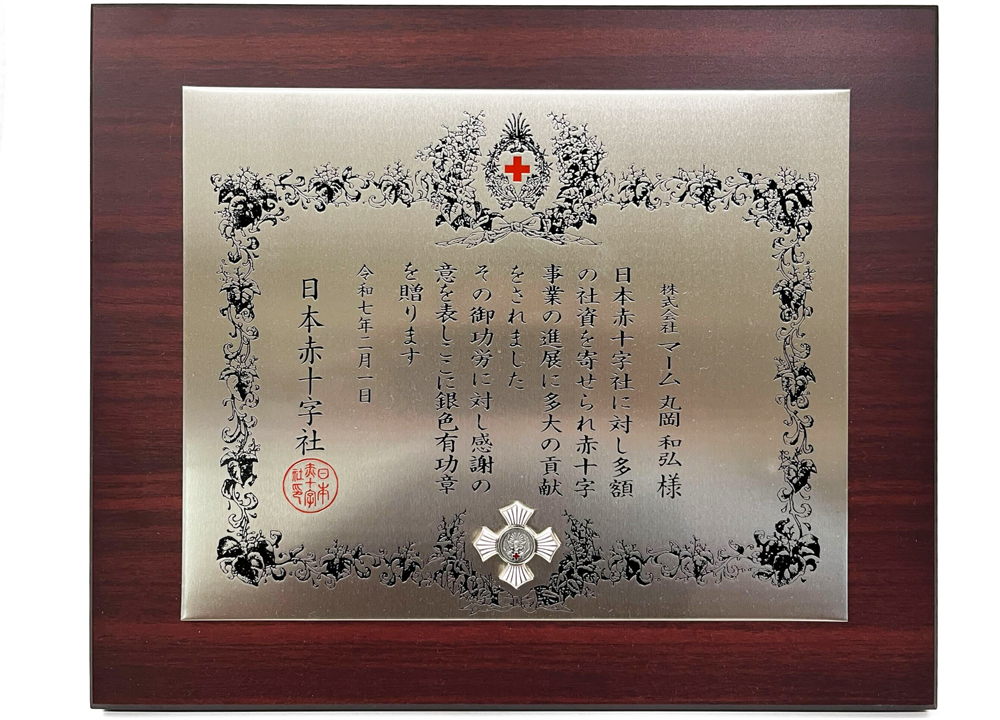 株式会社 マーム 丸岡 和弘 様
日本赤十字社に対し多額
の社資を寄せられ赤十字
事業の進展に多大の貢献
をされました
その御功労に対し感謝の
意を表しここに銀色有功章
を贈ります
令和七年二月一日
日本赤十字社
日本
赤十字
社印